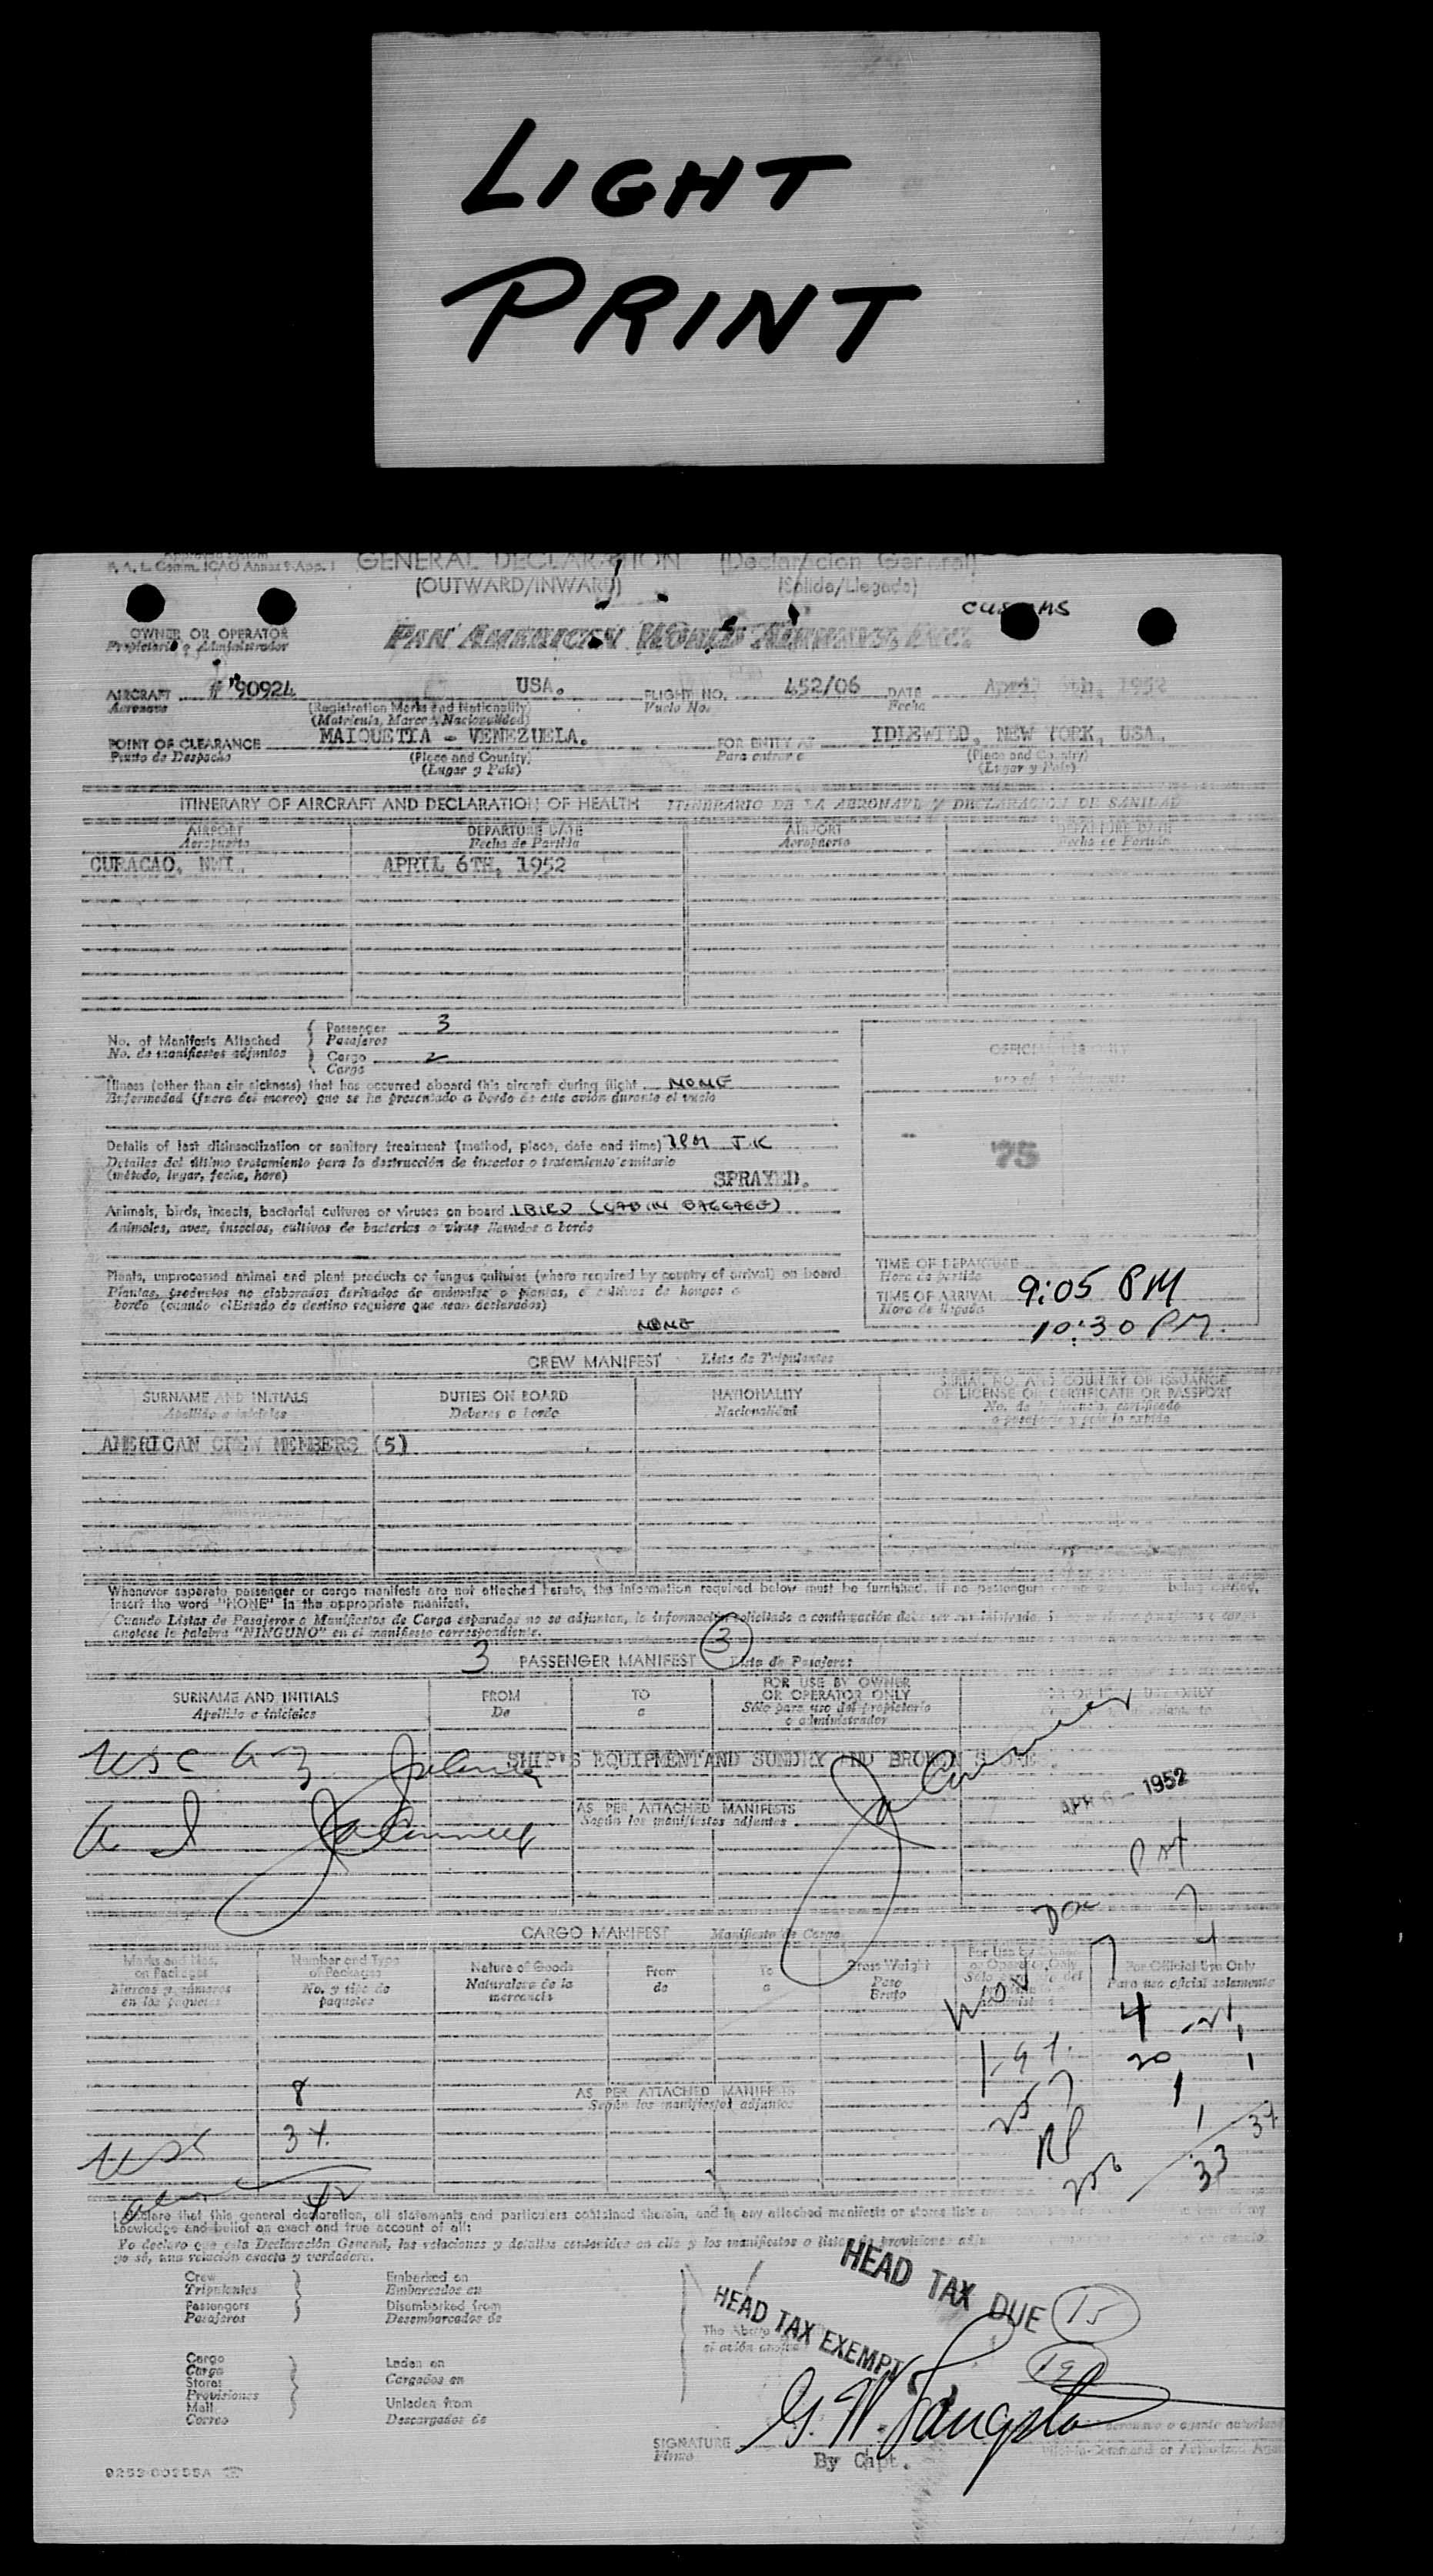 LIGHT
PRINT
GENERAL DECLARATION (Declaracion General)
(OUTWARD/INWARD) (Salida/Llegada)
CUSTOMS
OWNER OR OPERATOR PAN AMERICAN WORLD AIRWAYS, INC.
Propietario o Administrador
AIRCRAFT # 90924 USA. FLIGHT NO. 452/06 DATE April 6th, 1952
Aeronave (Registration Marks and Nationality) Vuelo No. Fecha
(Matricula, Marca y Nacionalidad)
POINT OF CLEARANCE MAIQUETIA - VENEZUELA. FOR ENTRY AT IDLEWILD, NEW YORK, USA.
Punto de Despacho (Place and Country) Para entrar a (Place and Country)
(Lugar y Pais) (Lugar y Pais)
ITINERARY OF AIRCRAFT AND DECLARATION OF HEALTH ITINERARIO DE LA AERONAVE Y DECLARACION DE SANIDAD
AIRPORT DEPARTURE DATE AIRPORT DEPARTURE DATE
Aeropuerto Fecha de Partida Aeropuerto Fecha de Partida
CURACAO, NWI. APRIL 6TH, 1952
No. of Manifests Attached Passenger 3
No. de manifiestos adjuntos Pasajeros
Cargo 2
Carga
OFFICIAL USE ONLY
Illness (other than air sickness) that has occurred aboard this aircraft during flight NONE
Enfermedad (fuera del mareo) que se ha presentado a bordo de este avión durante el vuelo
Details of last disinsectization or sanitary treatment (method, place, date and time)
Detalles del último tratamiento para la destrucción de insectos o tratamiento sanitario
(método, lugar, fecha, hora) SPRAYED.
75
Animals, birds, insects, bacterial cultures or viruses on board 1 BIRD (CABIN BAGGAGE)
Animales, aves, insectos, cultivos de bacterias o virus llevados a bordo
Plants, unprocessed animal and plant products or fungus cultures (where required by country of arrival) on board
Plantas, productos no elaborados derivados de animales o plantas, o cultivos de hongos a
bordo (cuando el Estado de destino requiere que sean declarados)
NONE
TIME OF DEPARTURE
Hora de partida
TIME OF ARRIVAL 9:05 PM
Hora de llegada
10:30 PM.
CREW MANIFEST Lista de Tripulantes
SURNAME AND INITIALS DUTIES ON BOARD NATIONALITY SERIAL NO. AND COUNTRY OF ISSUANCE
OF LICENSE OR CERTIFICATE OR PASSPORT
Apellido e iniciales Deberes a bordo Nacionalidad
AMERICAN CREW MEMBERS (5)
Whenever separate passenger or cargo manifests are not attached hereto, the information required below must be furnished. If no passengers being carried,
insert the word "NONE" in the appropriate manifest.
Cuando Listas de Pasajeros o Manifiestos de Carga separados no se adjuntan, la información solicitada a continuación debe ser suministrada.
anotese la palabra "NINGUNO" en el manifiesto correspondiente.
3 PASSENGER MANIFEST 3 Lista de Pasajeros
SURNAME AND INITIALS FROM TO FOR USE BY OWNER
OR OPERATOR ONLY
Apellido e iniciales De a Sólo para uso del propietario
o administrador
SHIP'S EQUIPMENT AND SUNDRY AND BROKEN STORES.
AS PER ATTACHED MANIFESTS
Según los manifiestos adjuntos
APR 6 - 1952
CARGO MANIFEST Manifiesto de Carga
Marks and Nos. on Packages Number and Type of Packages Nature of Goods From To Gross Weight For Official Use Only
Marcas y números en los paquetes No. y tipo de paquetes Naturaleza de la mercancia de a Peso Bruto Para uso oficial solamente
4
20 1
8
AS PER ATTACHED MANIFESTS
Según los manifiestos adjuntos
34
33
I declare that this general declaration, all statements and particulars contained therein, and in any attached manifests or stores lists
knowledge and belief an exact and true account of all:
Yo declaro que esta Declaración General, las relaciones y detalles contenidos en ella y los manifiestos o listas de provisiones
yo sé, una relación exacta y verdadera.
Crew Embarked on
Tripulantes Embarcados en
Passengers Disembarked from
Pasajeros Desembarcados de
Cargo Laden on
Carga Cargados en
Stores
Provisiones
Mail Unladen from
Correo Descargados de
HEAD TAX DUE 15
HEAD TAX EXEMPT 19
SIGNATURE
Firma
By Capt.